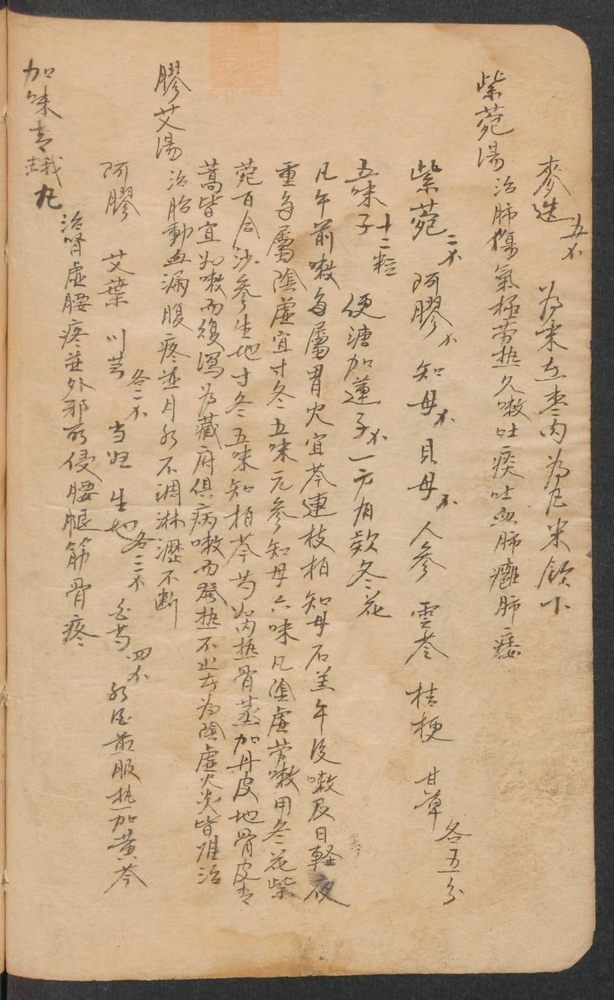 麥選五不 為末 煮枣肉為丸 米飲下
紫菀湯 治肺傷氣極劳热久嗽吐痰吐血肺癰肺痿
紫菀二不 阿膠不 知母不 貝母不 人參 雲苓 桔梗 甘草各五分
五味子十二粒 便溏加蓮子不 一方有欵冬花
凡午前嗽多屬胃火宜芩連枝柏知母石羔午後嗽及日軽夜
重多屬陰虚宜寸冬五味元參知母六味凡陰虚劳嗽用冬花紫
菀百合沙參生地寸冬五味知柏芩芍为内热骨蒸加丹皮地骨皮青
蒿皆宜如嗽而後瀉為藏府俱病嗽而發热不止者為陰虚火炎皆难治
膠艾湯 治胎動血漏腹疼並月水不調淋瀝不断
阿膠 艾葉 川芎各二不 当归 生地各三不 白芍四不 水酒煎服热加黄芩
加味青娥丸 治腎虚腰疼並外邪所侵腰腿筋骨疼